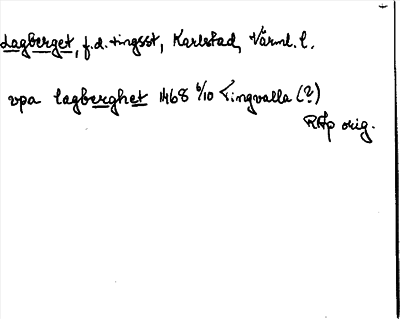 Lagberget, f.d. tingsst, Karlstad, Värml. l.
vpa lagberghet 1468 6/10 Tingvalla (?)
RAp orig.